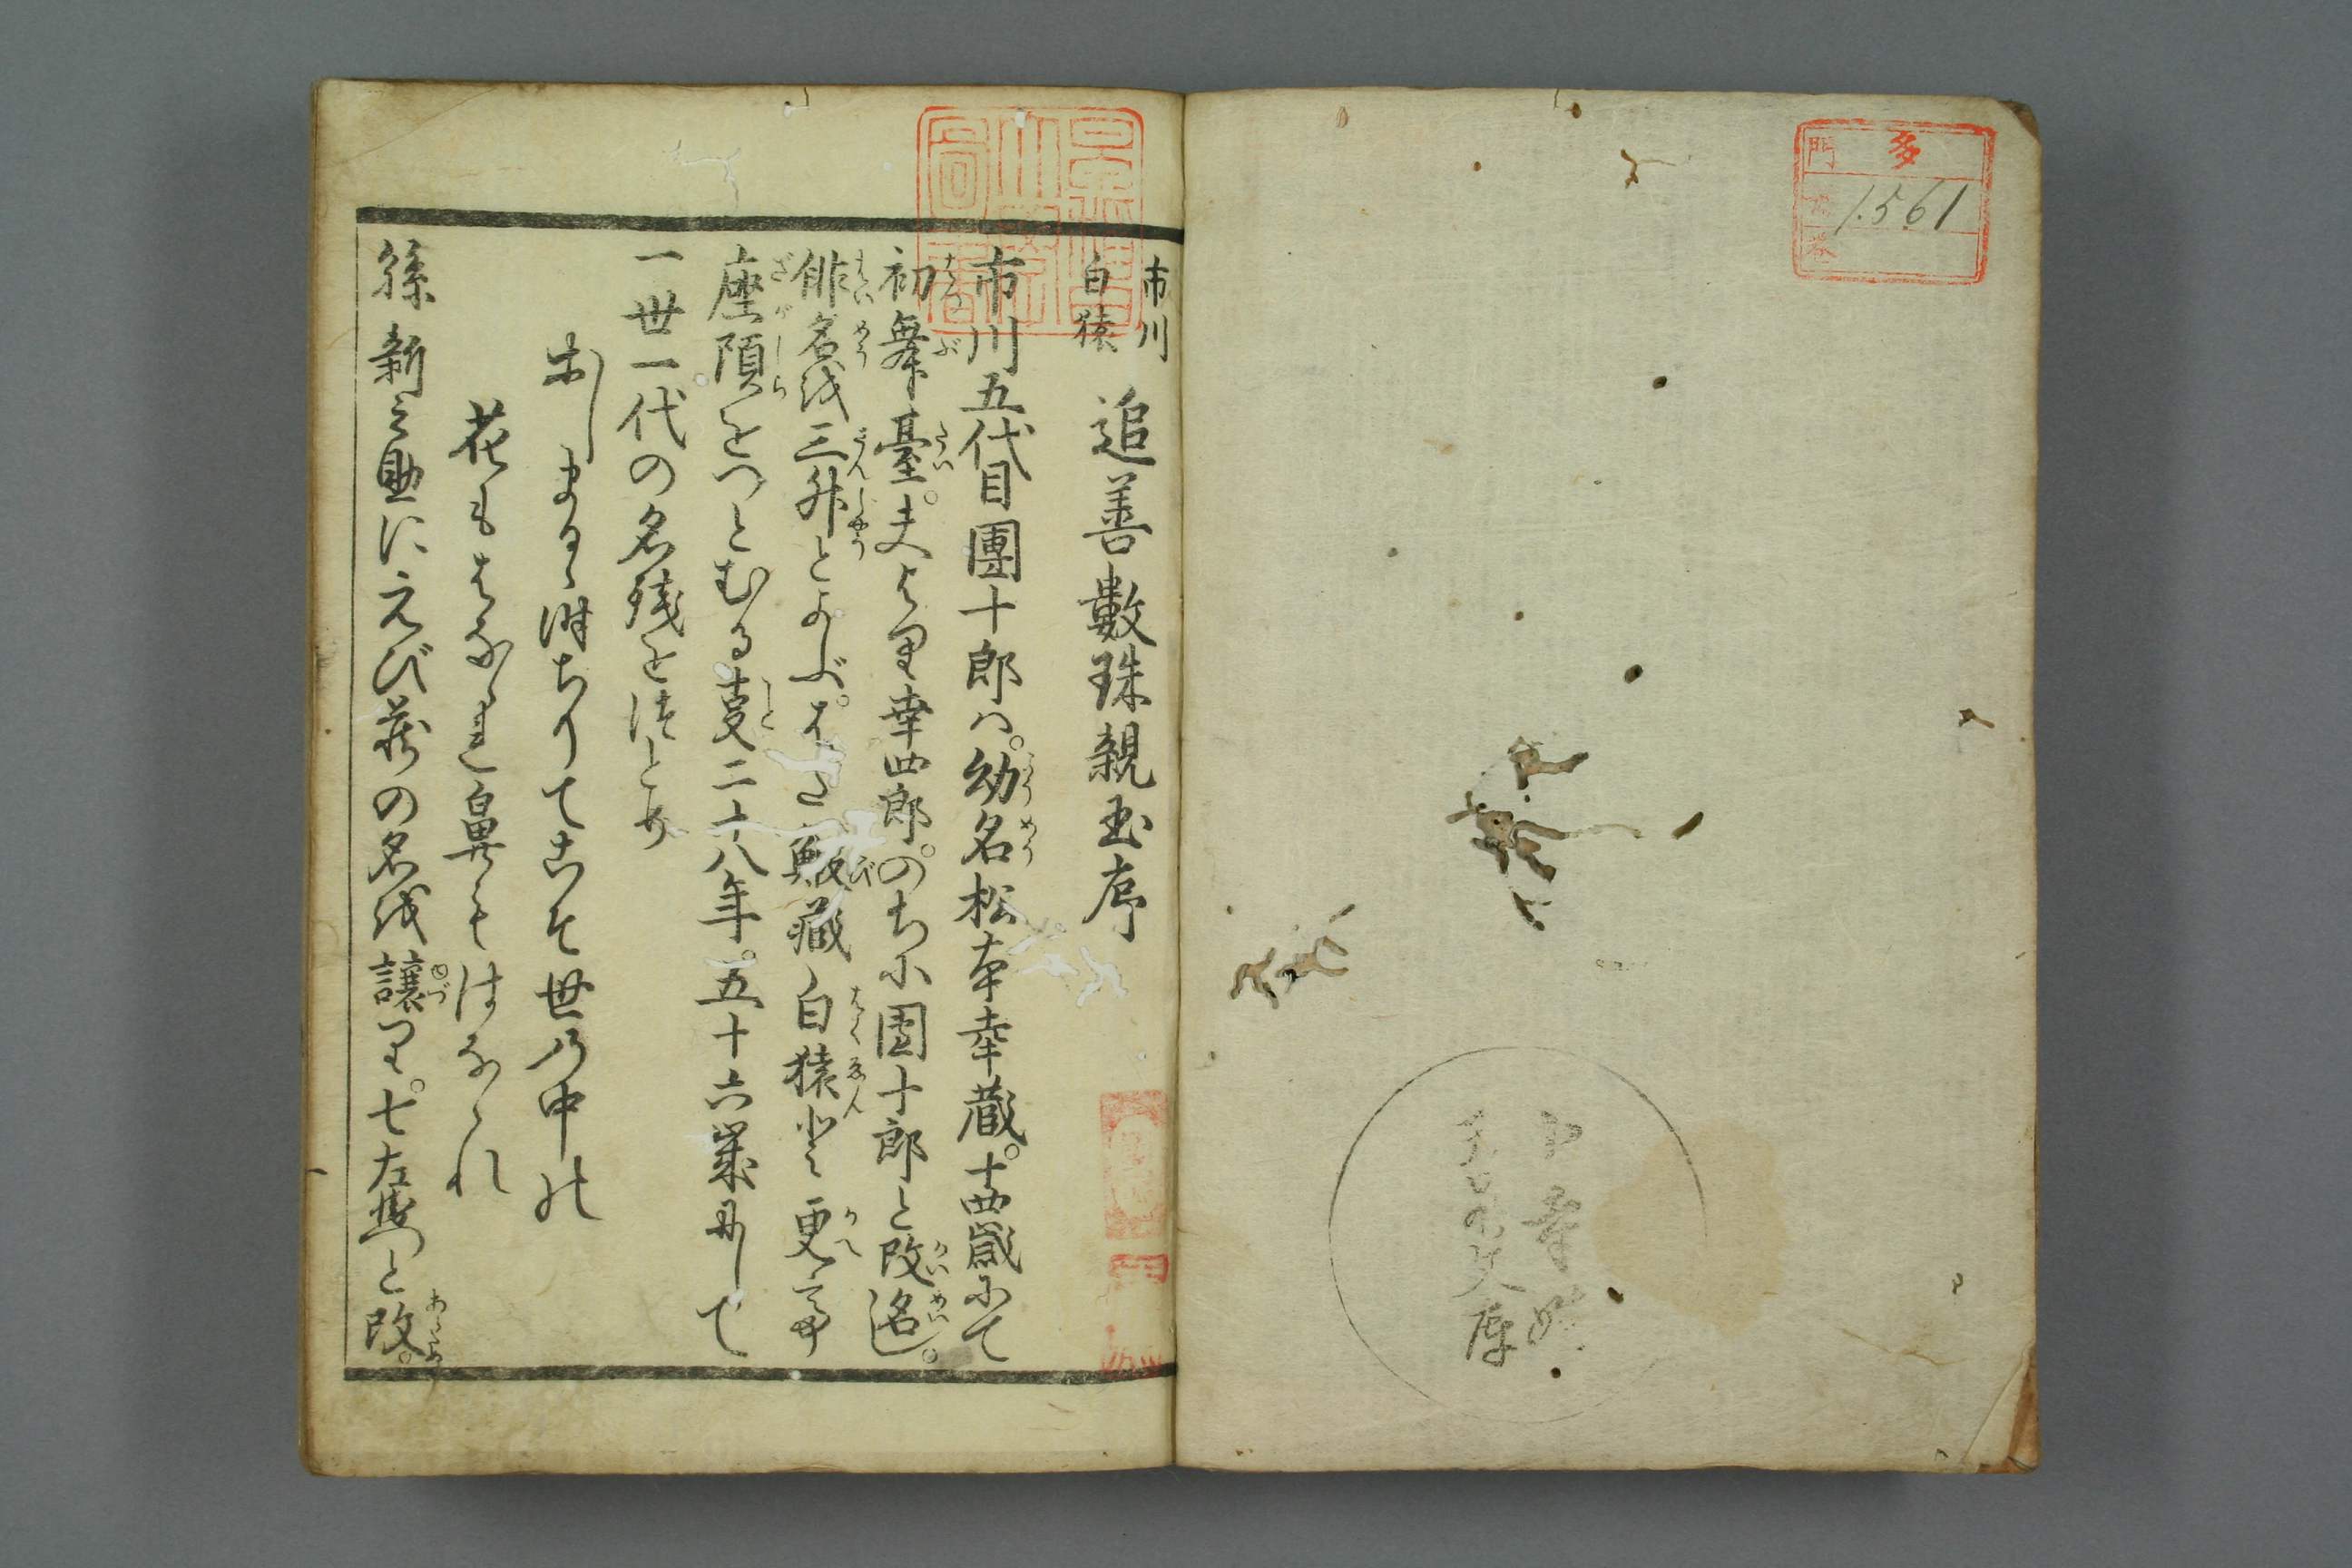 多
門
1.561
市川
白猿
追善數珠親玉序
市川五代目團十郎ハ。幼名松本幸蔵。十四歳にて
初舞臺。夫より幸四郎。のち小團十郎と改名し。
俳名を三升とよぶ。
鰕蔵白猿と更
座頭をつとむる㕝二十八年。五十六歳にして
一世一代の名残をつとめ
おしまるゝ時ちりてこそ世の中の
花もはななれ鼻もはなゝれ
孫新之助にえび蔵の名を譲り。七左衛門と改。